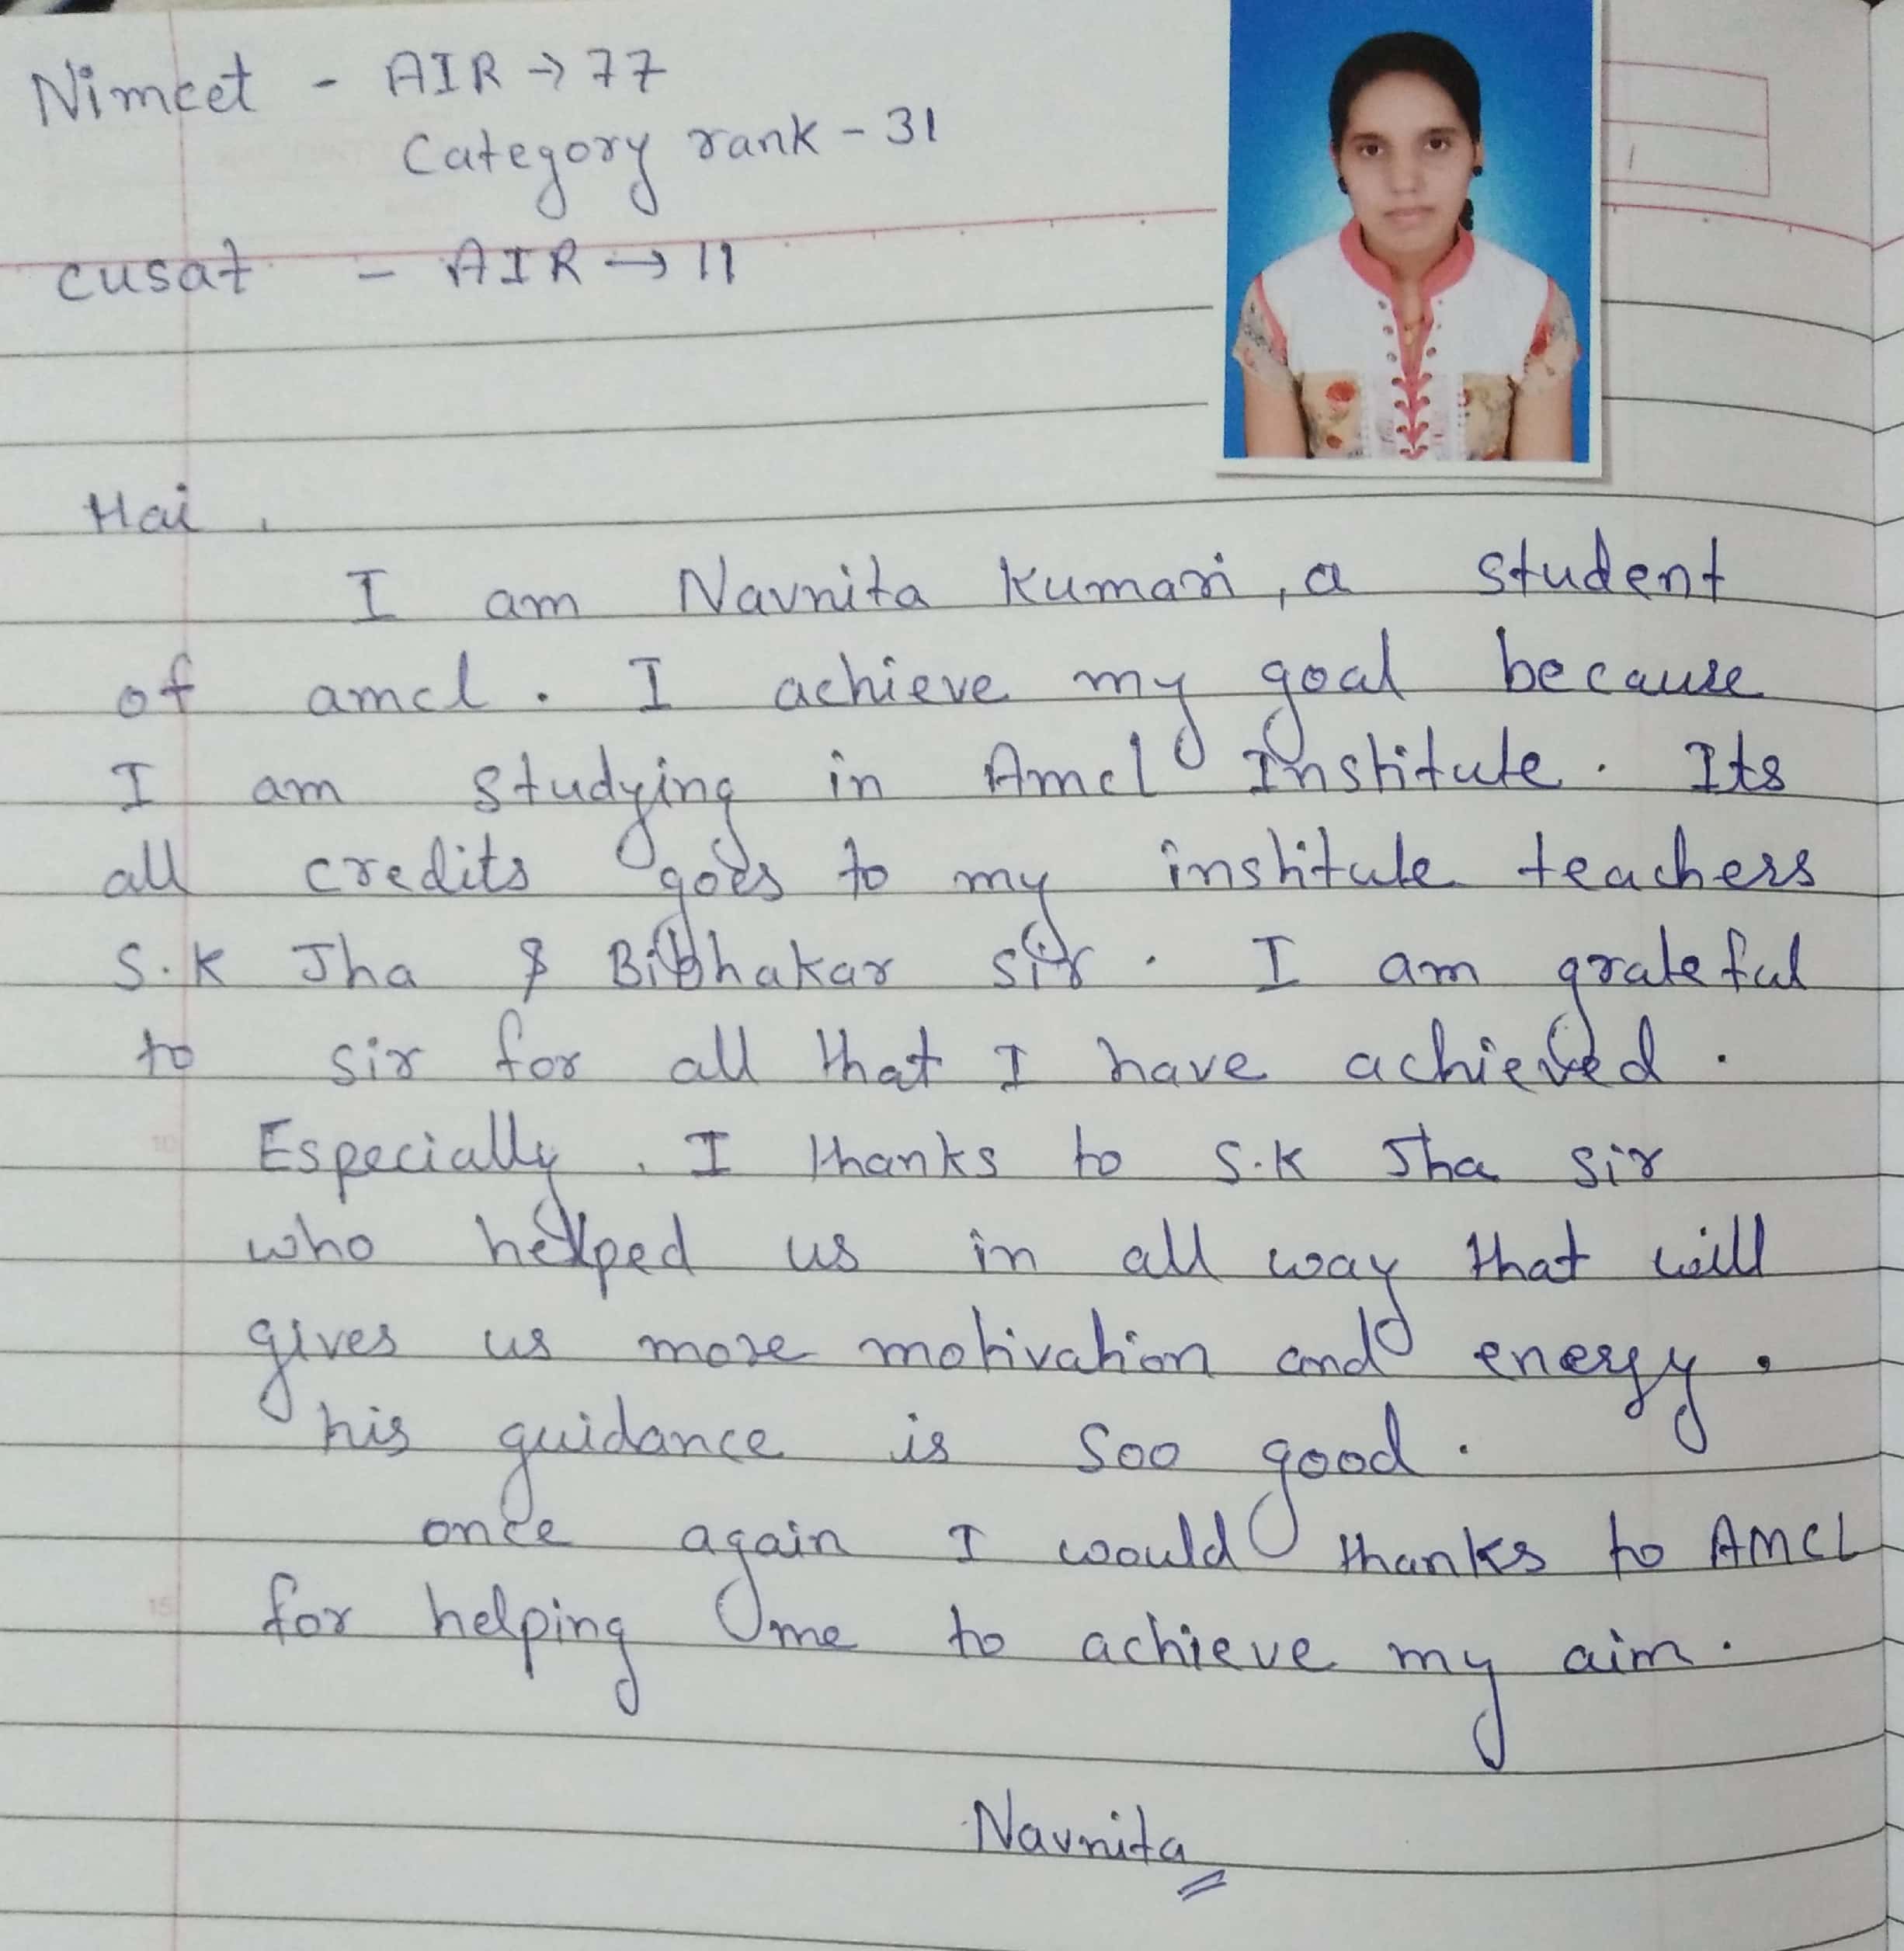 Nimcet - AIR → 77
Category rank - 31
cusat - AIR → 11
Hai,
I am Navnita Kumari, a student
of amcl. I achieve my goal because
I am studying in Amcl Institute. Its
all credits goes to my institute teachers
S.K Jha & Bibhakar sir. I am grateful
to sir for all that I have achieved.
Especially, I thanks to S.K Jha Sir
who helped us in all way that will
gives us more motivation and energy.
his guidance is Soo good.
once again I would thanks to AMCL
for helping me to achieve my aim.
Navnita